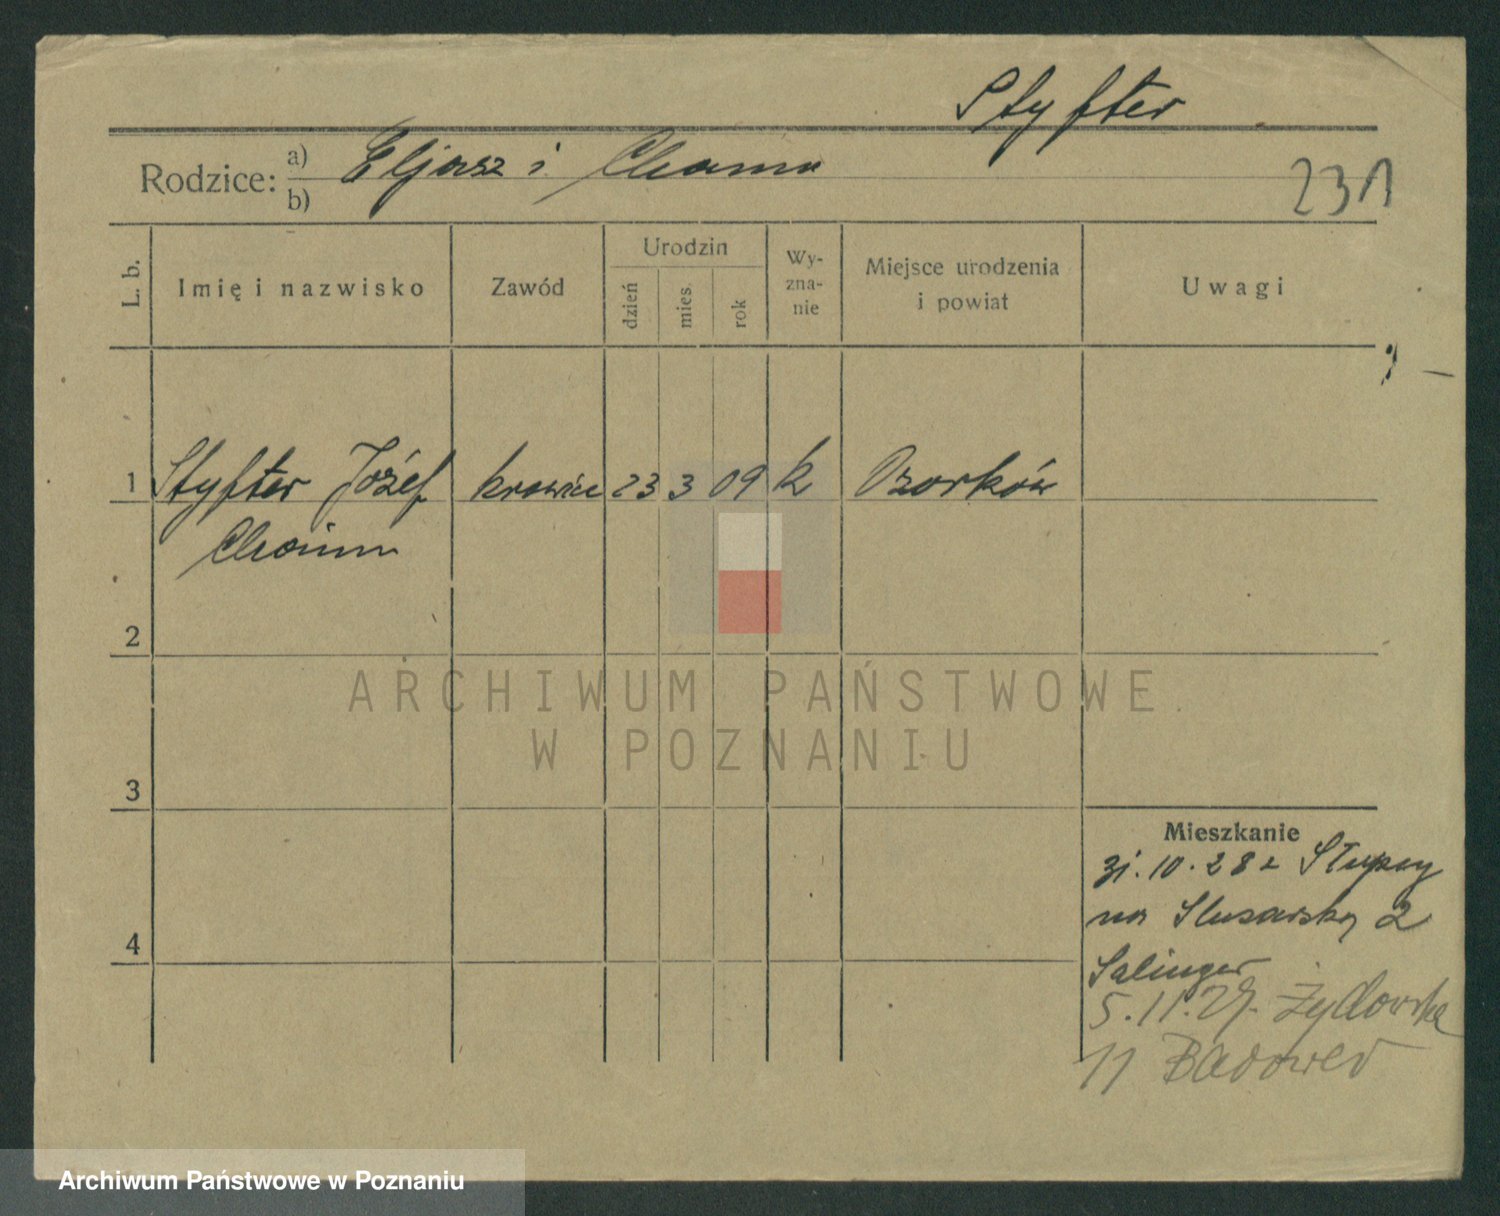 Styfter
Rodzice: a) Eljasz i Chana
b)
231
L. b.
Imię i nazwisko
Zawód
Urodzin
dzień
mies.
rok
Wy-
zna-
nie
Miejsce urodzenia
i powiat
Uwagi
1 Styfter Józef krawiec 23 3 09 k Ozorków
Chaim
2
3
4
Mieszkanie
31.10.28 z Słupcy
na Slusarską 2
Salinger
5.11.29. Żydowska
11 Badower
ARCHIWUM PAŃSTWOWE
W POZNANIU
Archiwum Państwowe w Poznaniu